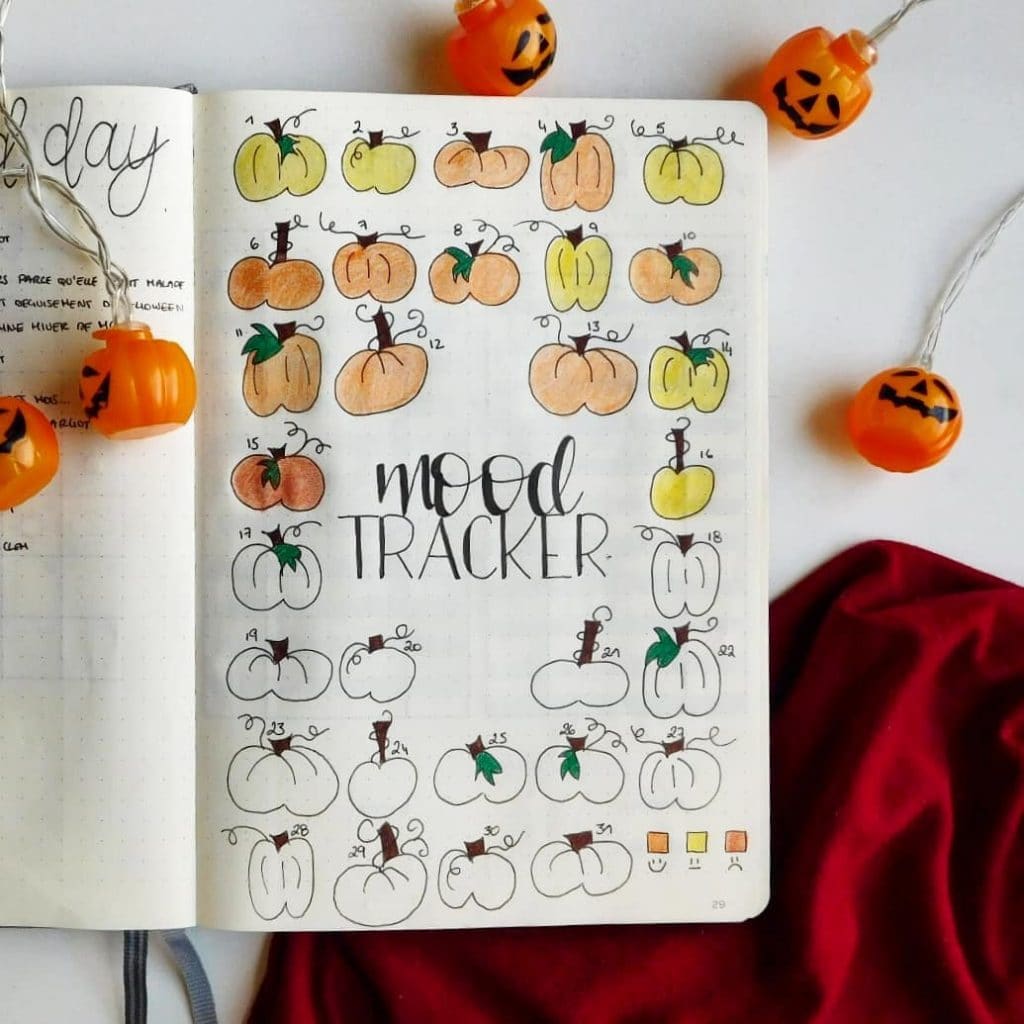 day
PARCE QU'ELLE MALADE
DEGUISEMENT
HIVER DE
MOIS...
MARGOT
CLEM
1 2 3 4 5
6 7 8 9 10
11 12 13 14
15 16
mood
TRACKER
17 18
19 20 21 22
23 24 25 26 27
28 29 30 31
29